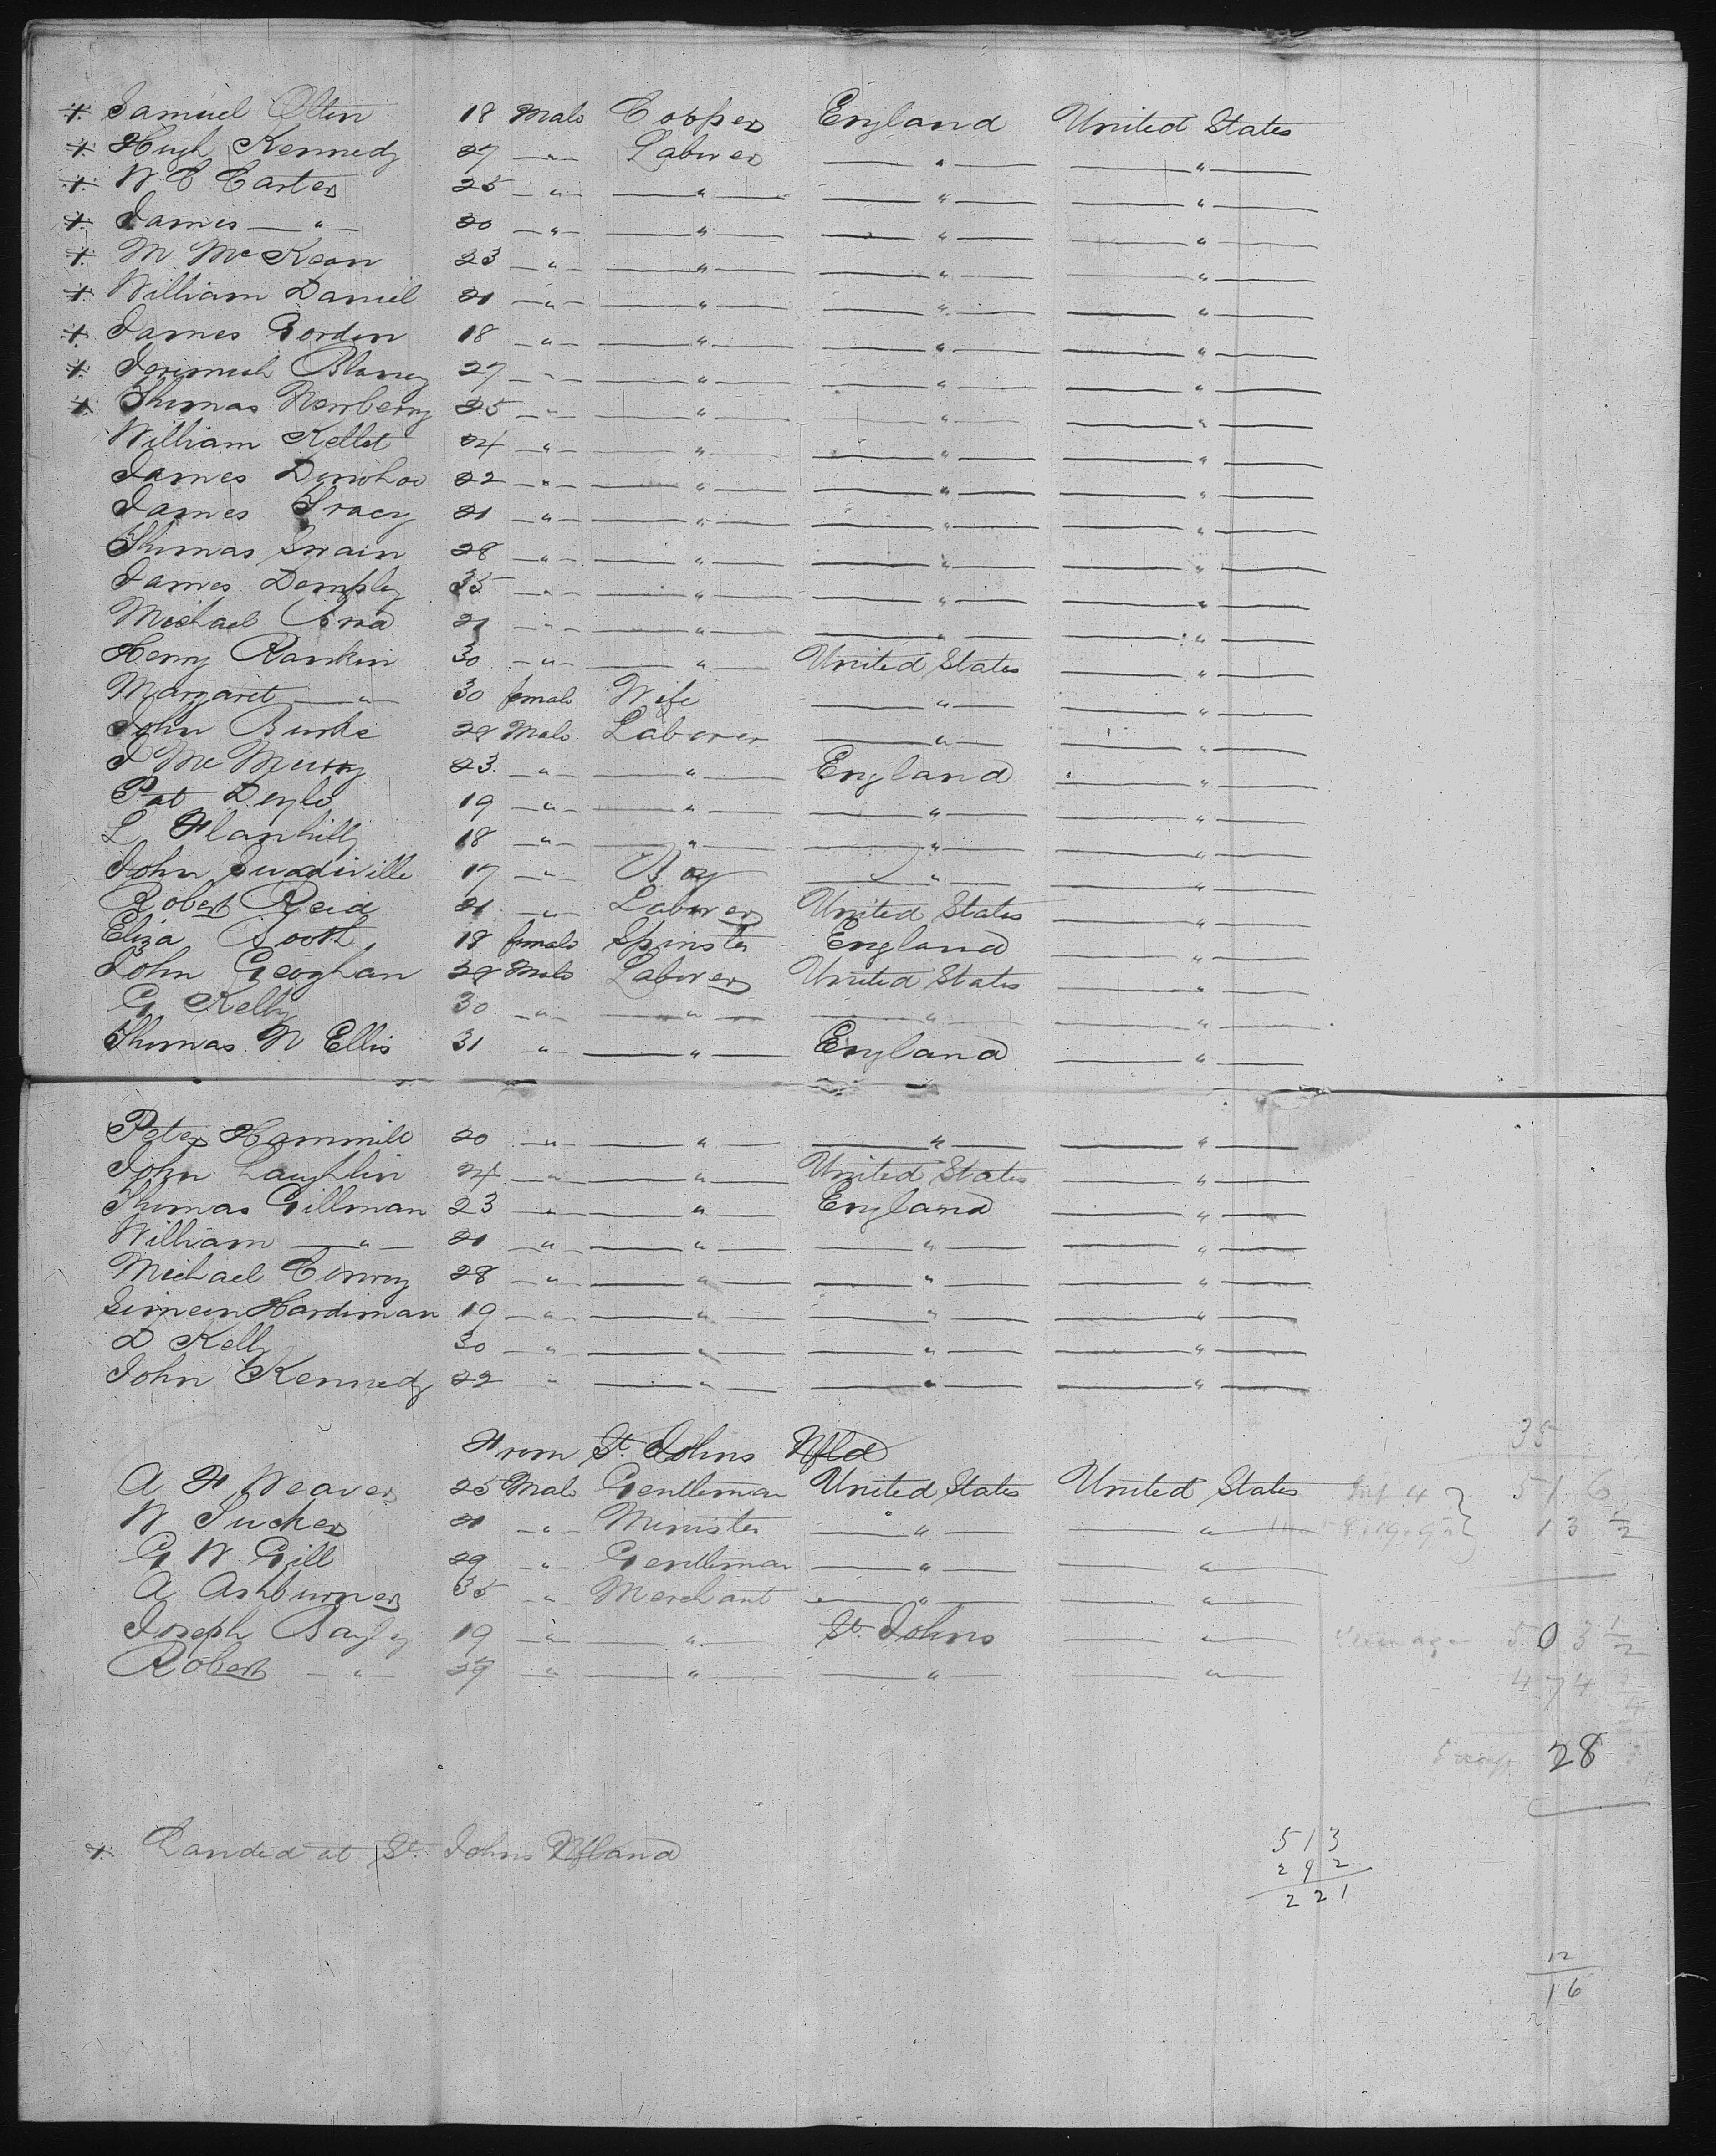 + Samuel Olten 18 Male Cooper England United States
+ Hugh Kennedy 27 " Laborer " "
+ W C Carter 25 " " " "
+ James " 20 " " " "
+ M McKeon 23 " " " "
+ William Daniel 21 " " " "
+ James Gorden 18 " " " "
+ Jerimiah Blaney 27 " " " "
+ Thomas Newberry 25 " " " "
William Kellet 24 " " " "
James Donohoo 22 " " " "
James Tracy 21 " " " "
Thomas Swain 28 " " " "
James Dempsey 35 " " " "
Michael 21 " " " "
Henry Rankin 30 " " United States "
Margaret " 30 female Wife " "
John Burke 28 Male Laborer " "
J Mc 23 " " England "
Pat Doyle 19 " " " "
L 18 " " " "
John 17 " Boy " "
Robert Reid 21 " Laborer United States "
Eliza Booth 18 female Spinster England "
John Geoghan 28 Male Laborer United States "
G Kelly 30 " " " "
Thomas N Ellis 31 " " England "
Peter Hammill 20 " " " "
John Laughlin 24 " " United States "
Thomas Gillman 23 " " England "
William " 21 " " " "
Michael Conroy 28 " " " "
Simeon Hardiman 19 " " " "
D Kelly 30 " " " "
John Kennedy 22 " " " "
From St. Johns Nfld
35
A F Weaver 25 Male Gentleman United States United States Inf 4 516
W Tucker 21 " Minister " " 13 1/2
G W Gill 29 " Gentleman " "
A Ashburner 35 " Merchant " "
Joseph Bayly 19 " " St. Johns " 503 1/2
Robert " 27 " " " "
474
28
+ Landed at St. Johns Nfland
513
292
221
12
16